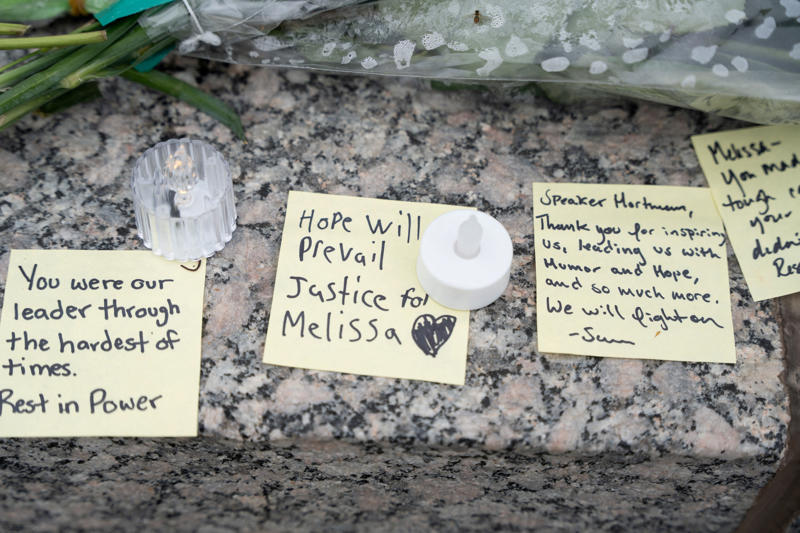 You were our
leader through
the hardest of
times.
Rest in Power
Hope Will
Prevail
Justice for
Melissa
Speaker Hortman,
Thank you for inspiring
us, leading us with
Humor and Hope,
and so much more.
We will fight on
Melissa-
you mad
tough
your
Res